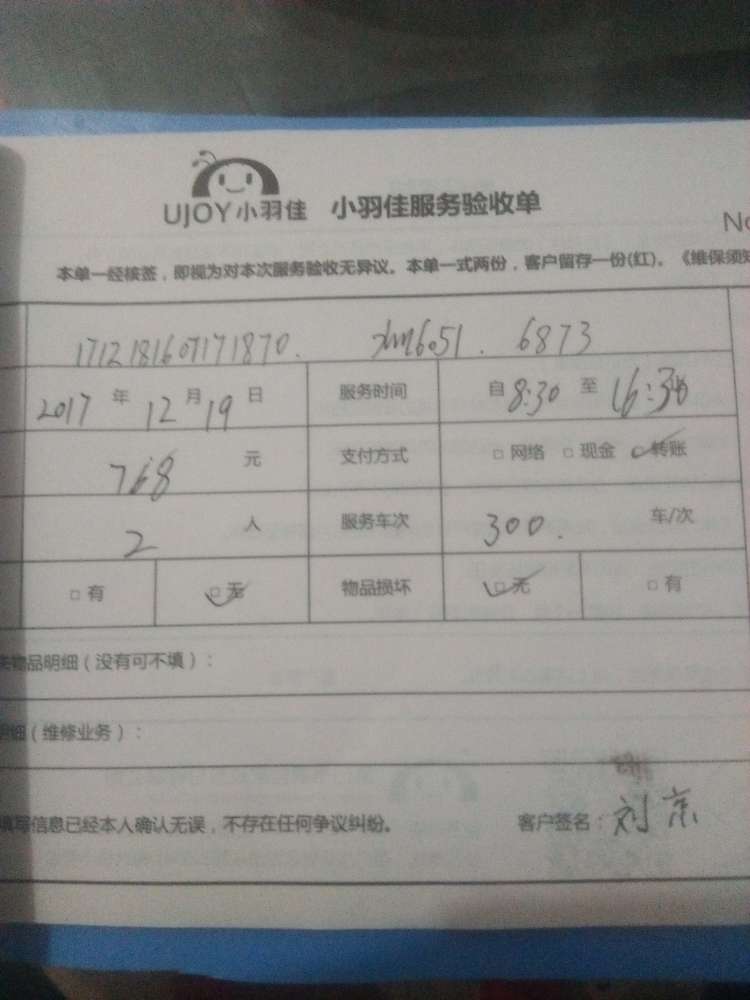 UJOY小羽佳 小羽佳服务验收单
No
本单一经核签，即视为对本次服务验收无异议。本单一式两份，客户留存一份(红)。《维保须知
1712181607171870. 6051. 6873
2017 年 12 月 19 日 服务时间 自 8:30 至 16:30
768 元 支付方式 □ 网络 □ 现金 □ 转账
2 人 服务车次 300. 车/次
□ 有 □ 无 物品损坏 □ 无 □ 有
类物品明细（没有可不填）：
明细（维修业务）：
填写信息已经本人确认无误，不存在任何争议纠纷。 客户签名：刘京